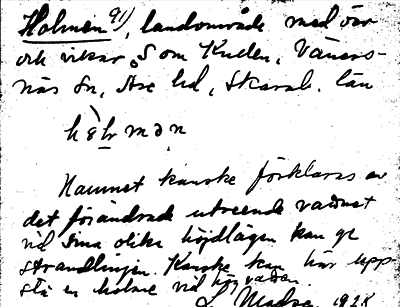 Holmen 91), landområde med öar
och vikar, S om Kullen, Väners-
näs sn, Åse hd, Skarab. län
Namnet kanske förklaras av
det förändrade utseende vattnet
vid sina olika höjdlägen kan ge
strandlinjen. Kanske kan här upp
stå en holme vid högvatten.
1928